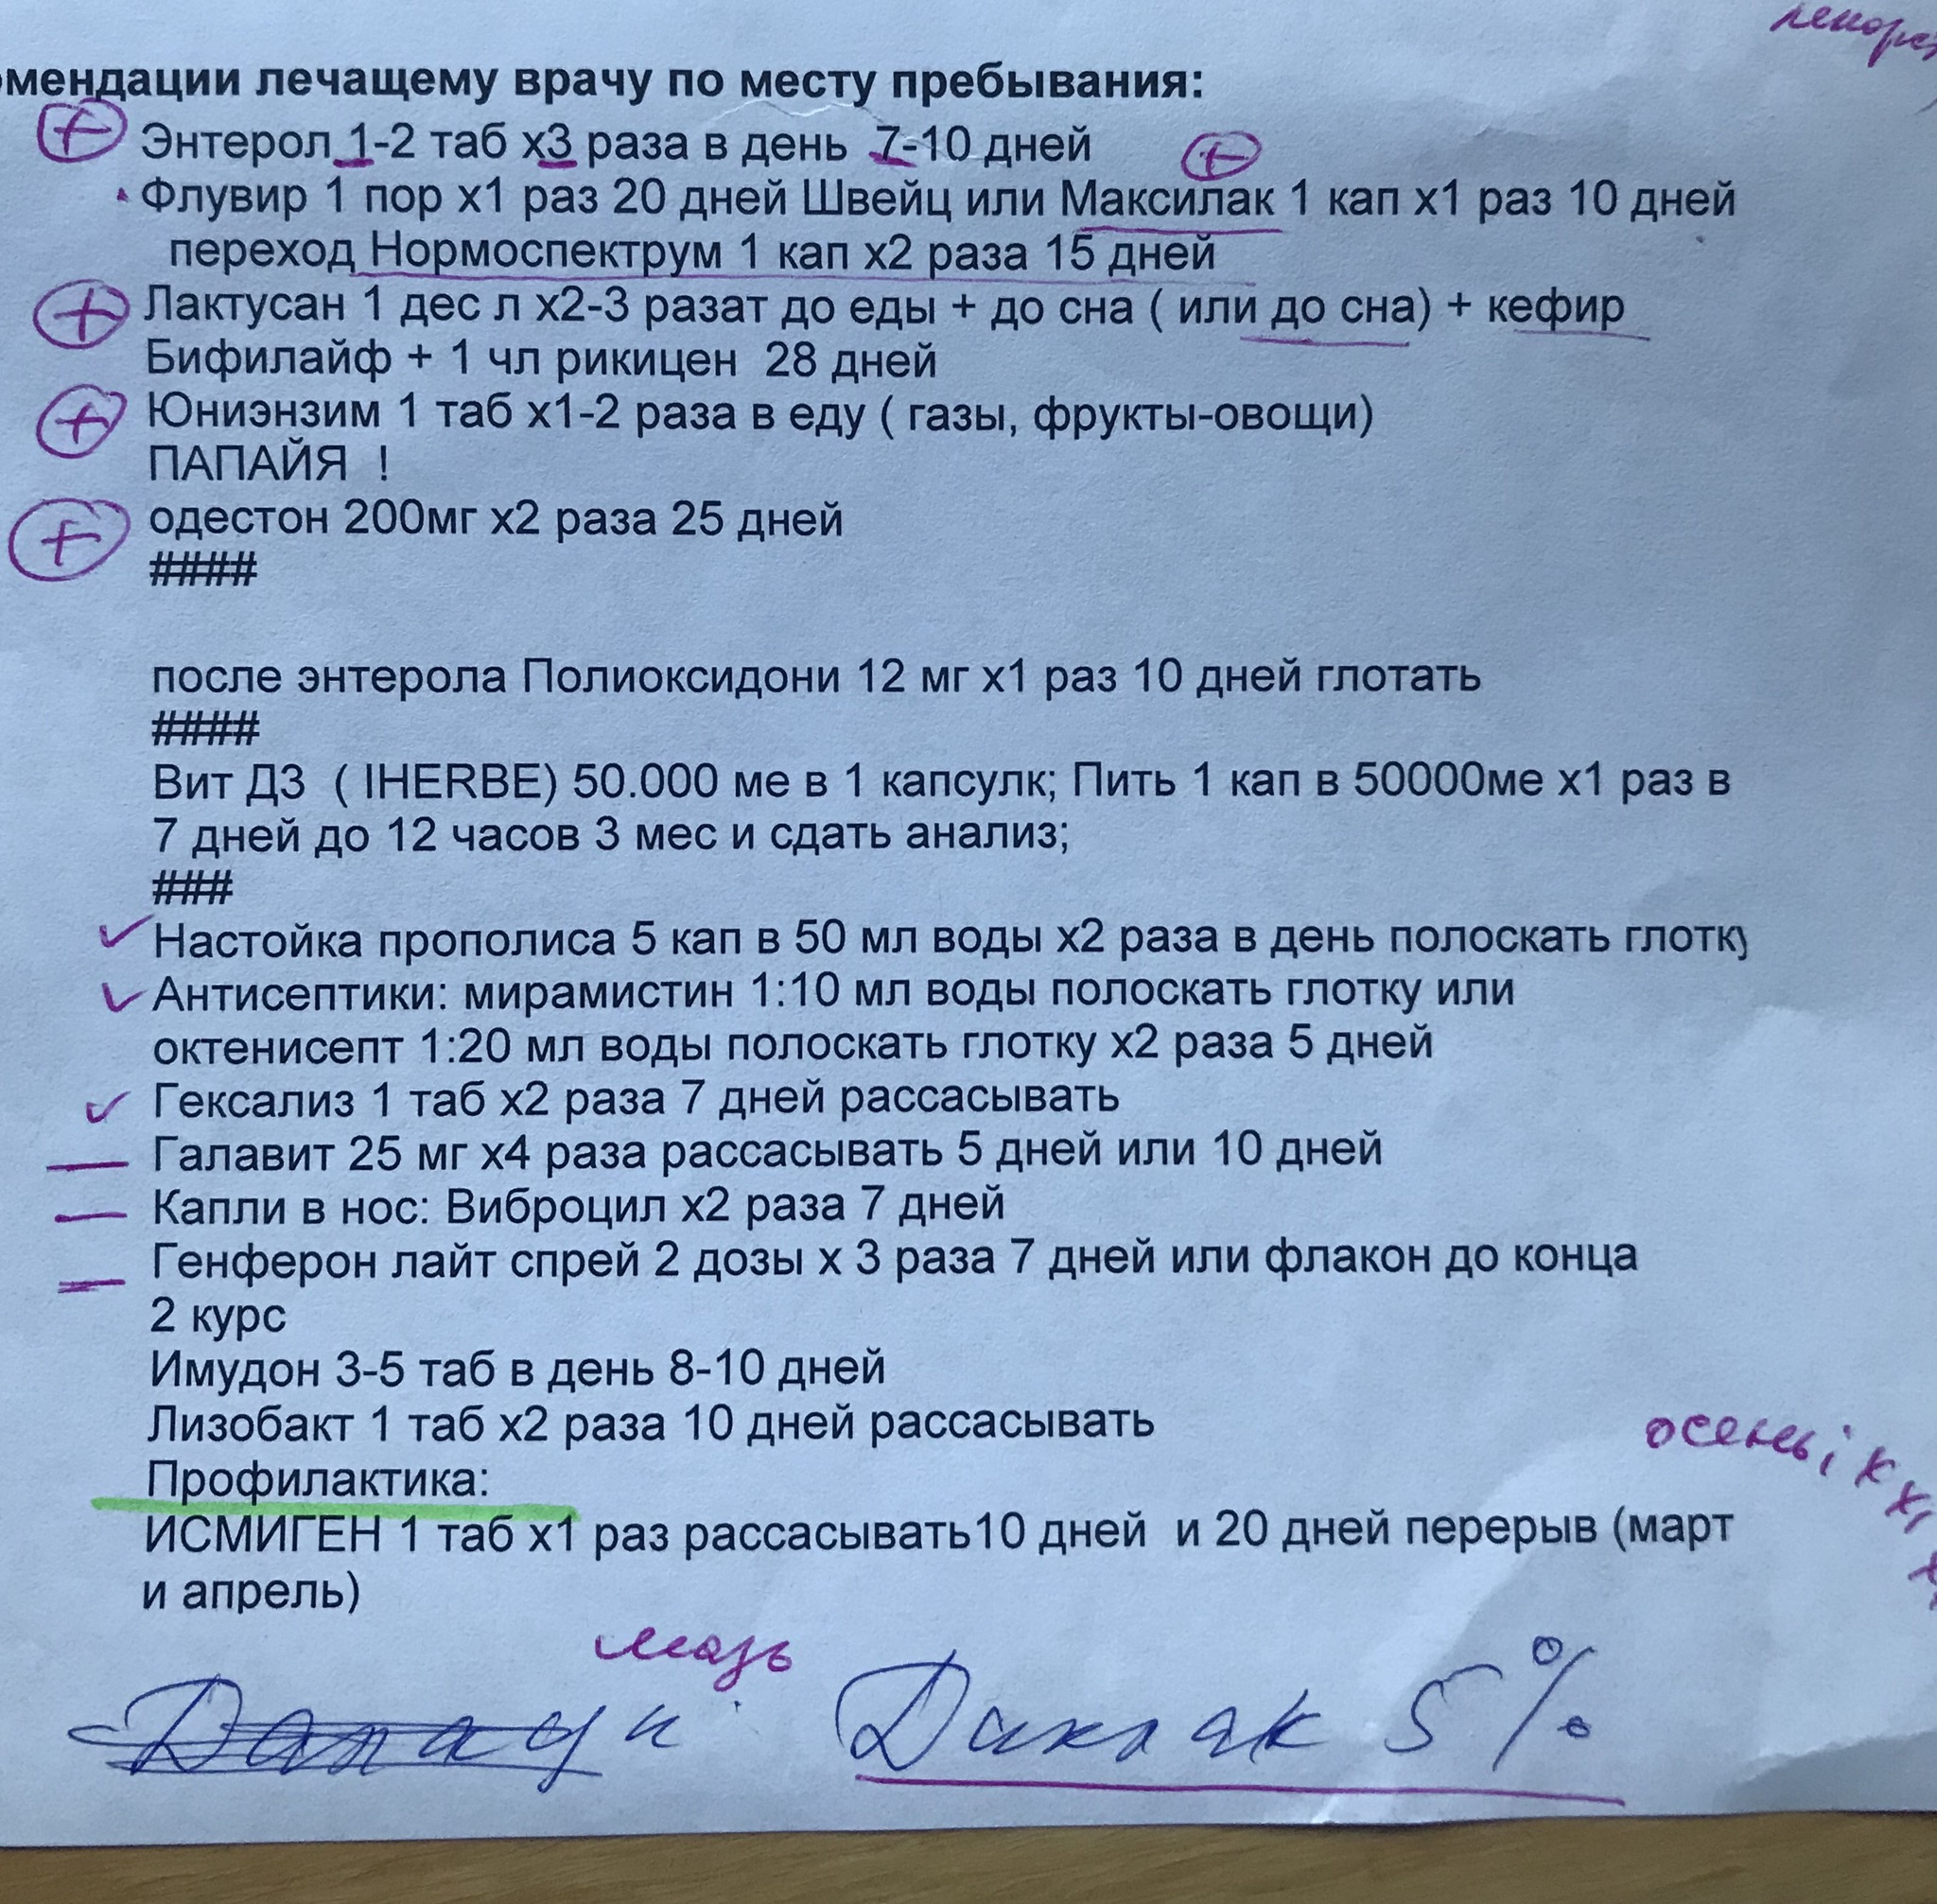 омендации лечащему врачу по месту пребывания:
Энтерол 1-2 таб х3 раза в день 7-10 дней
Флувир 1 пор х1 раз 20 дней Швейц или Максилак 1 кап х1 раз 10 дней
переход Нормоспектрум 1 кап х2 раза 15 дней
Лактусан 1 дес л х2-3 разат до еды + до сна ( или до сна) + кефир
Бифилайф + 1 чл рикицен 28 дней
Юниэнзим 1 таб х1-2 раза в еду ( газы, фрукты-овощи)
ПАПАЙЯ !
одестон 200мг х2 раза 25 дней
####
после энтерола Полиоксидони 12 мг х1 раз 10 дней глотать
####
Вит Д3 ( IHERBE) 50.000 ме в 1 капсулк; Пить 1 кап в 50000ме х1 раз в
7 дней до 12 часов 3 мес и сдать анализ;
###
Настойка прополиса 5 кап в 50 мл воды х2 раза в день полоскать глотку
Антисептики: мирамистин 1:10 мл воды полоскать глотку или
октенисепт 1:20 мл воды полоскать глотку х2 раза 5 дней
Гексализ 1 таб х2 раза 7 дней рассасывать
Галавит 25 мг х4 раза рассасывать 5 дней или 10 дней
Капли в нос: Виброцил х2 раза 7 дней
Генферон лайт спрей 2 дозы х 3 раза 7 дней или флакон до конца
2 курс
Имудон 3-5 таб в день 8-10 дней
Лизобакт 1 таб х2 раза 10 дней рассасывать
осень
Профилактика:
ИСМИГЕН 1 таб х1 раз рассасывать10 дней и 20 дней перерыв (март
и апрель)
мазь
Диклак 5%